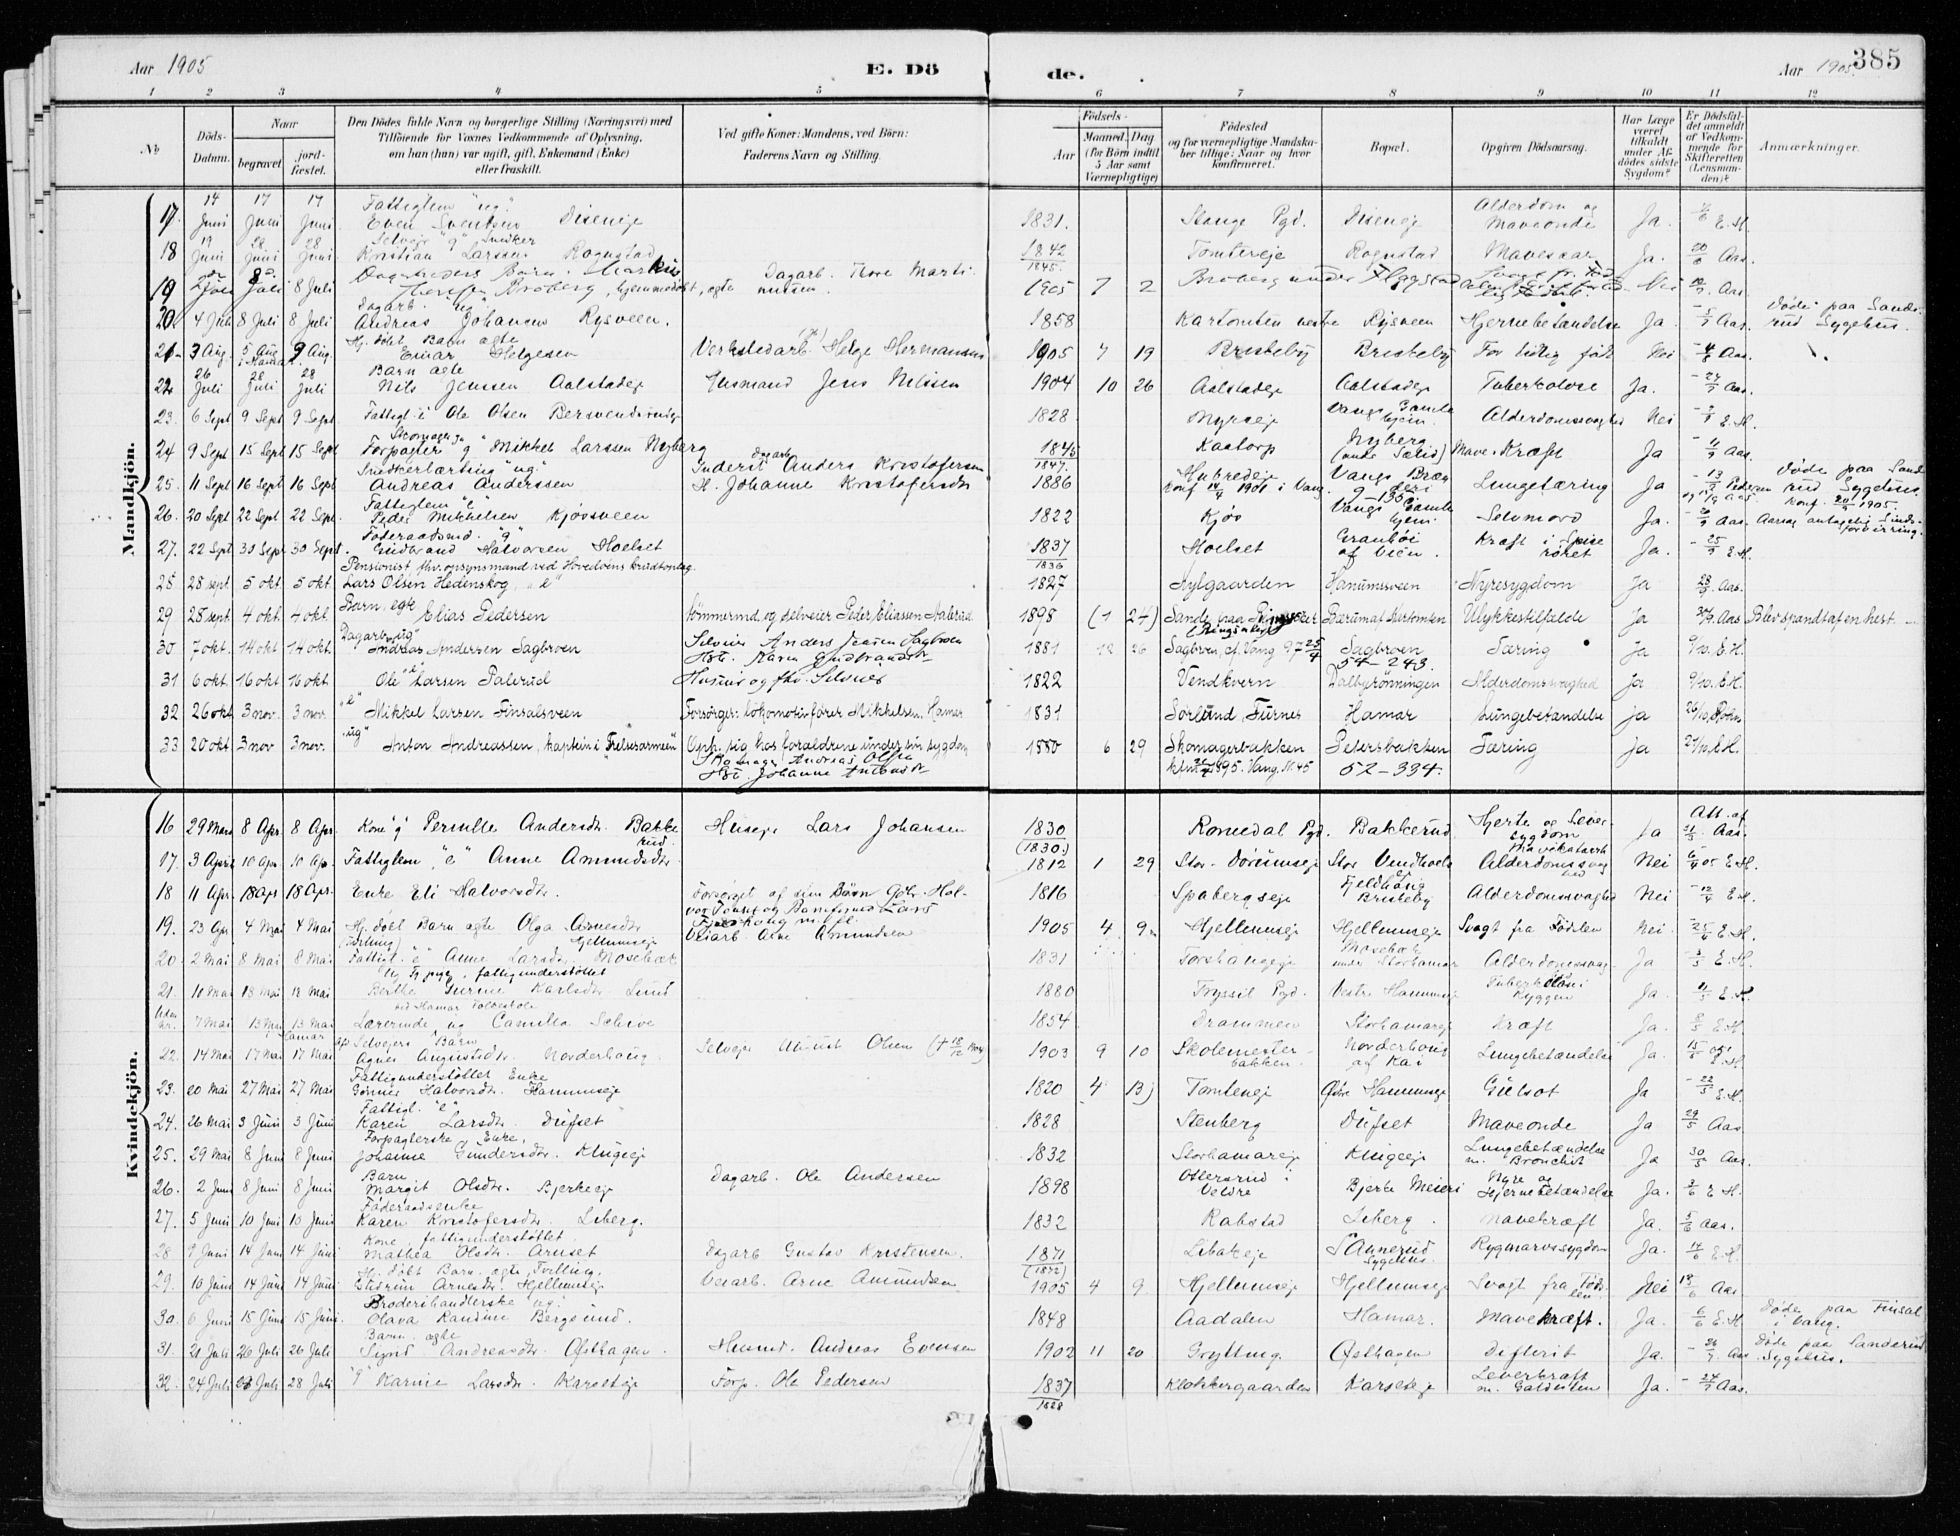 Aar 1905
E. Dö
de.
Aar 1905.
385
1 2 3 4 5 6 7 8 9 10 11 12
No
Döds-Datum.
Naar
begravet
jord-fæstet.
Den Dödes fulde Navn og borgerlige Stilling (Næringsvei) med
Tilföiende for Voxnes Vedkommende af Oplysning,
om han (hun) var ugift, gift, Enkemand (Enke)
eller fraskilt.
Ved gifte Koner: Mandens, ved Börn:
Faderens Navn og Stilling.
Födsels-
Aar
Maaned Dag
(for Börn indtil
5 Aar samt
Værnepligtige)
Födested
og for værnepligtige Mandska-
ber tillige: Naar og hvor
konfirmeret.
Bopæl.
Opgiven Dödsaarsag.
Har Læge
været
tilkaldt
under Af-
dödes sidste
Sygdom?
Er Dödsfal-
det anmeldt
af Vedkom-
mende for
Skifteretten
(Lensman-
den)?
Anmærkninger.
Mandkjön.
17. 14 Juni 17 Juni 17 Juni Fattiglem "ug." Even Svendsen Diseneje 1831. Stange Pgd. Diseneje Alderdom og Maveonde Ja. E.H.
18 19 Juni 28 Juni 28 Juni Selveje "g" Snedker Kristian Larsen Rognstad 1842 1845. Tomtereje Rognstad Mavesaar Ja. 20/6 Aas.
19 Juli 8 Juli 8 Juli Dagarbeiders Barn. Markus Broberg, hjemmedøbt, egte Dagarb. Thore Martinussen. 1905 7 2 Broberg under Flagstad Nei Aas.
20. 4 Juli 8 Juli 8 Juli Dagarb. "ug" Andreas Johansen Rysveen. 1858 Kartomten vestre Rysveen Hjernebetændelse Ja. 5/7 Aas. Døde paa Sanderud Sygehus.
21 3 Aug. 5 Aug. 9 Aug. Hj. døbt Barn ægte Einar Helgesen Verkstedarb. Helge Hermansen 1905 7 19 Briskeby Briskeby For tidlig født Nei 4/8 Aas.
22 26 Juli 28 Juli 28 Juli Barn ægte Nils Jenssen Aalstadeje Husmand Jens Nilssen 1904 10 26 Aalstadeje Aalstadeje Tuberkulose Ja. 27/7 Aas.
23. 6 Sept 9 Sept 9 Sept Fattigl. Ole Olsen Bersvendsrudeje 1828 Myrseje Vangs Gamlehjem. Alderdomssvaghed Nei E.H.
24 9 Sept 15 Sept 15 Sept Forpagter "g" Mikkel Larsen Nyberg 1845 1847. Kaatorp Nyberg Mave-Kræft Ja 11/9 Aas.
25. 11 Sept 16 Sept 16 Sept Snedkerlærling "ug" Andreas Anderssen Inderst Anders Kristofersen H. Johanne Kristofersdtr 1886 Hubredeje konf 1901 i Vang. Lungetæring Ja Døde paa Sanderud Sygehus. konf. 1905.
26. 20 Sept 22 Sept 22 Sept. Fattiglem "e" Peder Mikkelsen Kjøsveen 1822 Kjøs Vangs Gamlehjem. Selvmord Ja. Aas. Aarsag antagelig Sindsforvirring.
27. 22 Sept 30 Sept 30 Sept. Føderaadsmd. "g" Gudbrand Halvorsen Hoelset 1837 1836 Hoelset Granbøl af Vien. Kræft i Spiserøret Ja. 25/9 E.H.
28 28 sept 5 okt 5 okt. Pensionist fhv. opsynsmand ved Hovedøens krudtoplag. Lars Olsen Hedenskog, "e" 1827 Nylgaarden Hanumsveen Nyresygdom Ja 28/9 Aas.
29 28 sept. 4 okt. 4 okt. Barn, egte Elias Pedersen Tømmermd. og selveier Peder Eliassen Aalerud 1898 (1 24) Sande paa Ringsaker (Ringsaker) Bærum af Kartomten Ulykkestilfælde Ja Aas Blev spændt af en hest.
30 7 okt. 14 okt. 14 okt. Dagarb. "ug" Andreas Andersen Sagbroen Selveier Anders Jensen Sagbroen Hstr. Karen Gudbrandsdtr 1881 12 26 Sagbroen, cf. Vang 97 25/4 Sagbroen 54-243. Tæring Ja 9/10. E.H.
31 6 okt. 16 okt. 16 okt "e" Ole Larsen Falerud Husmd og fhv. Selveier 1822 Vendkvern Dalbyrønningen Alderdomssvaghed Ja 9/10. E.H.
32 26 okt 3 nov. 3 nov. "e" Mikkel Larsen Finsalsveen Forsørger: Lokomotivfører Mikkelsen. Hamar 1831 Sørlund, Furnes Hamar Lungebetændelse Ja
33 20 okt 3 nov 3 nov. "ug" Anton Andreassen, kaptein i "Frelsesarmeen" Oph. sig hos forældrene under sin sygdom. Skomager Andreas Olsen Hst. Johanne Antonsdtr 1880 6 29 Skomagerbakken konf. 1895. Vang. N. 45 Petersbakken 52-334. Tæring Ja 21/10. E.H.
Kvindekjön.
16 29 Mars 8 Apr. 8 Apr. Kone "g" Pernille Andersdtr. Bakkerud. Huseje Lars Johansen 1830 (1830) Romedal Pgd. Bakkerud Hjerte og Leversygdom Ja Att. af Aas.
17. 3 April 10 Apr. 10 Apr. Fattiglem, "e" Anne Amundsdtr. 1812 1 29 Stor-Dørumseje Stor Vendkvols Alderdomssvaghed Nei E.H.
18 11 Apr. 18 Apr 18 Apr. Enke Eli Halvorsdtr. Forsørget af sine Børn 1816 Spabergseje Fjeldhaug Briskeby Alderdomssvaghed Nei 12/4 E.H.
19. 23 Apr. 4 Mai 4 Mai Hj. døbt Barn ægte Olga Arnesdtr (Tvilling) Hjellumseje Veiarb. Arne Amundsen 1905 4 9. Hjellumseje Hjellumseje Svagt fra Fødslen Nei. 25/4 E.H.
20. 2 Mai 8 Mai 8 Mai Fattigl. "e" Anne Larsdtr. Mosebæk 1831 Forshaugeje Mosebæk under Storhamar Alderdomssvag. Ja 3/5 E.H.
21. 10 Mai 18 Mai 18 Mai Ug Tj.pige, fattigunderstøttet Berthe Gurine Karlsdtr. Lund 1880 Tryssil Pgd. Vestre Hanumseje Tuberkulose i Ryggen Ja. 11/5 E.H.
Uden nr. 7 Mai 13 Mai 13 Mai Hamar ved Hamar Folkeskole Lærerinde ug Camilla Schive 1854 Drammen Storhamareje Kræft Ja. 8/5 E.H.
22. 14 Mai 17 Mai 17 Mai Selvejers Barn Agnes Augustsdtr. Norderhaug. Selveje August Olsen 1903 9 10 Skolemesterbakken. Norderhaug af Kai Lungebetændelse Ja. 15/5 E.H.
23. 20 Mai 27 Mai 27 Mai Fattigunderstøttet Enke Gønner Halvorsdtr. Hanumseje 1820 4 13) Tomteneje Øvre Hanumseje Gulsot Ja 22/5 E.H.
24. 26 Mai 3 Juni 3 Juni Fattigl. "e" Karen Larsdtr. Dufset 1828 Stenberg Dufset Maveonde Ja 29/5 Aas
25. 29 Mai 8 Juni 8 Juni Forpagterske, Enke, Johanne Gundersdtr. Klugeje 1832 Storhamareje Klugeje Lungebetændelse m. Bronchit Ja 30/5 Aas.
26. 2 Juni 8 Juni 8 Juni Barn Margit Olsdtr. Bjerkeje Dagarb. Ole Andersen 1898 Ottersrud i Veldre Bjerke Meieri Nyre og Hjernebetændelse Ja. 3/6 E.H.
27. 5 Juni 10 Juni 10 Juni Føderaadsenke Karen Kristofersdtr. Liberg. 1832 Rabstad Liberg. Mavekræft Ja. 5/6 Aas.
28 9 Juni 14 Juni 14 Juni Kone, fattigunderstøttet. Mathea Olsdtr. Aruset Dagarb Gustav Kristensen. 1871 (1872) Libakeje Sannerud Sygehus. Rygmarvssygdom Ja. 14/6 E.H.
29. 10 Juni 14 Juni 14 Juni Hj. døbt Barn ægte, Tvilling, Gudrun Arnesdtr. Hjellumseje Veiarb. Arne Amundsen 1905 4 9 Hjellumseje Hjellumseje Svagt fra Fødslen Nei 13/6 Aas.
30. 6 Juni 15 Juni 15 Juni. Broderihandlerske "ug." Olava Randine Bergsund. 1848 Aadalen Hamar. Mavekræft. Ja. 6/6 E.H. Døde paa Finsal i Vang.
31. 21 Juli 26 Juli 26 Juli Barn, ægte Signe Andreasdtr. Østhagen. Husmd. Andreas Evensen 1902 11 20 Grytting Østhagen Difterit Ja. Aas Døde paa Sanderud Sygehus.
32. 24 Juli 28 Juli 28 Juli "g" Karine Larsdtr. Karseteje Forp. Ole Pedersen 1837 1828 Klokkergaarden Karseteje Leverkræft m. Galdesten Ja. 24/7 Aas.